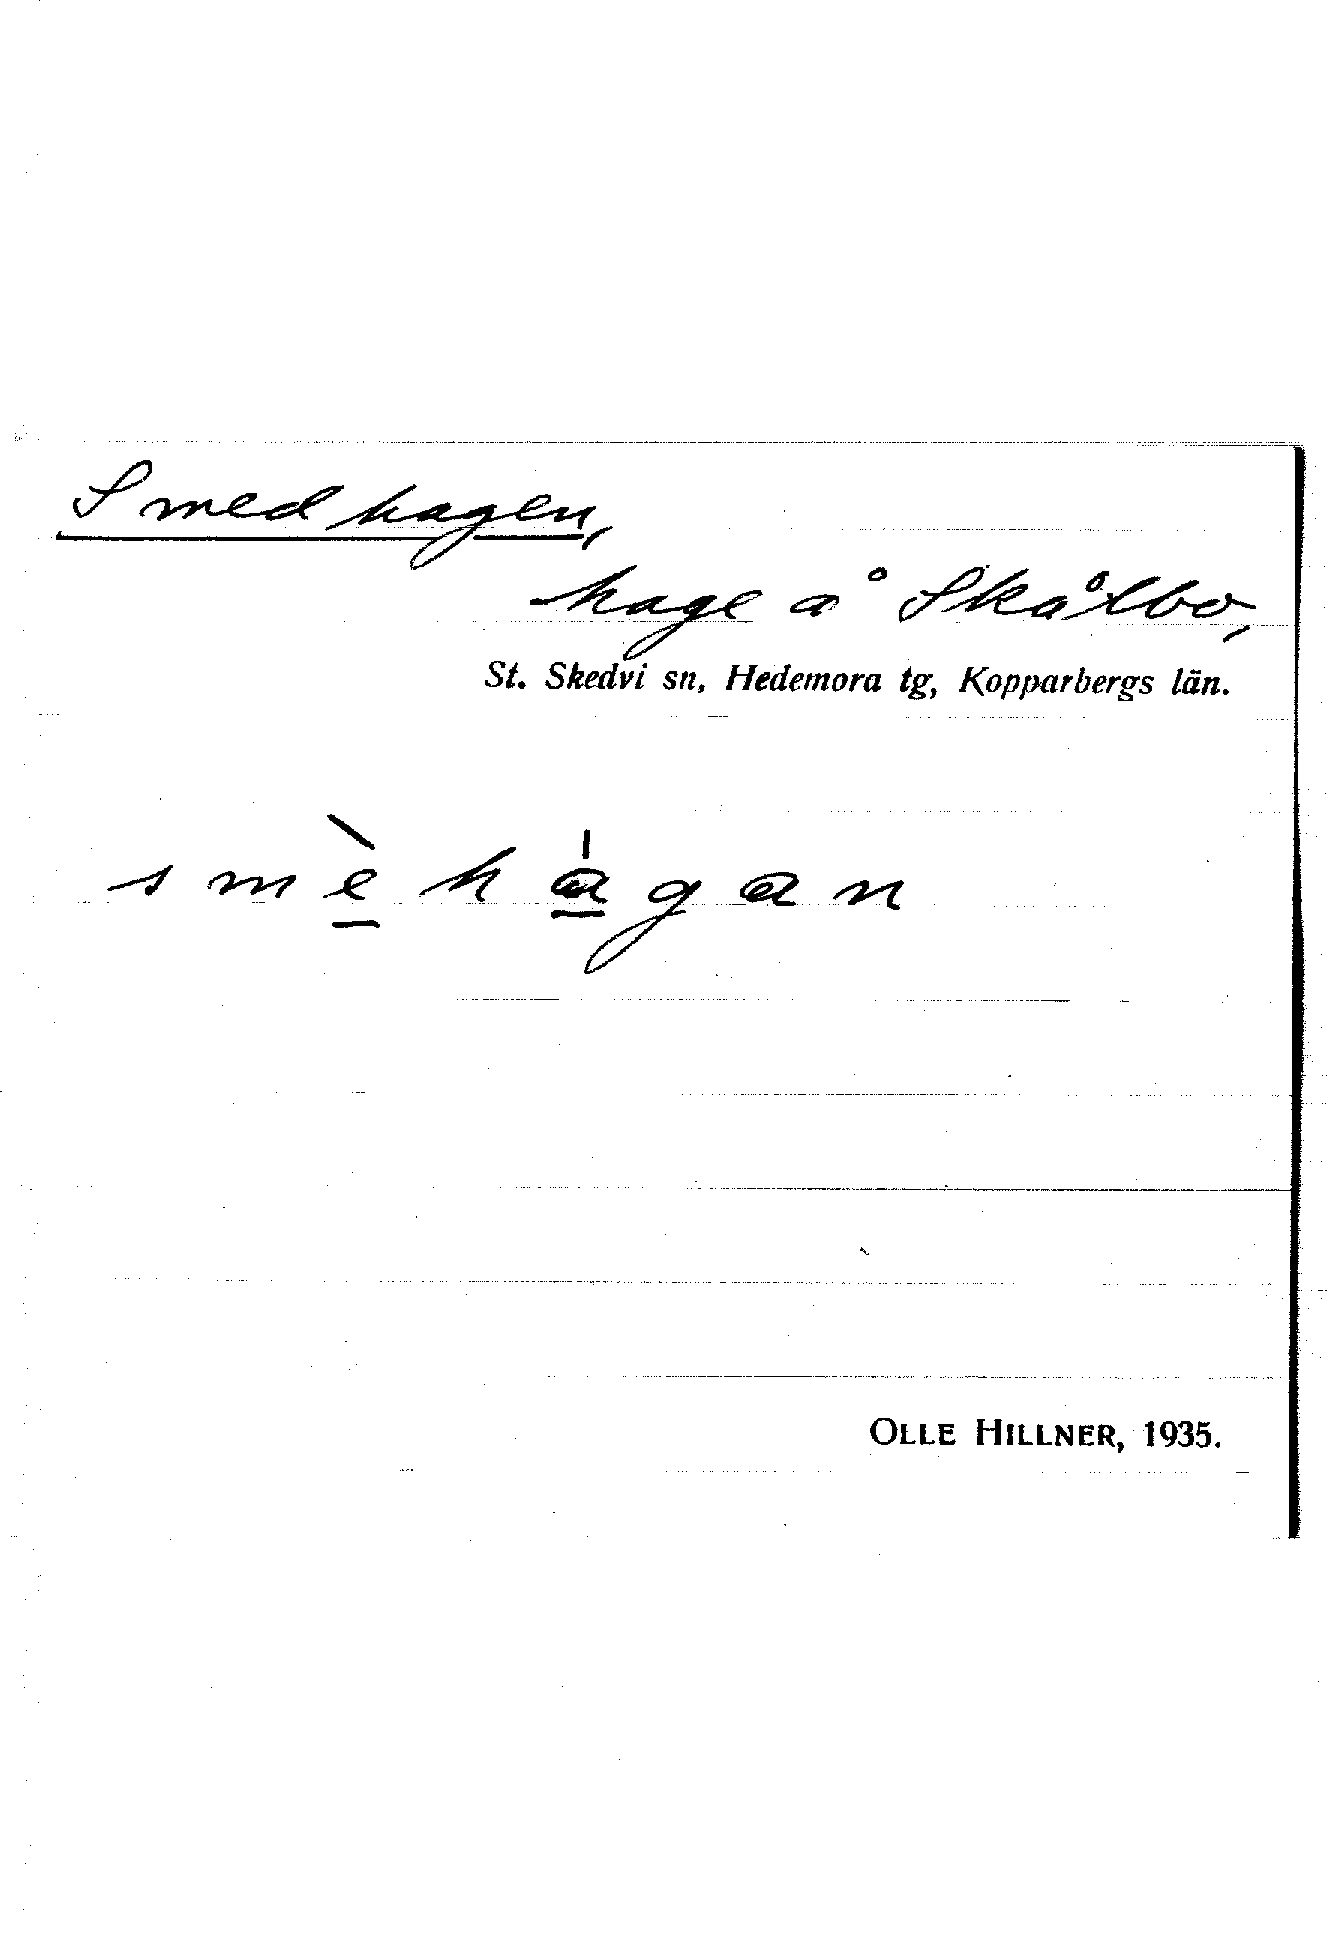 Smedhagen,
hage å Skålbo,
St. Skedvi sn, Hedemora tg, Kopparbergs län.
smèhágan
OLLE HILLNER, 1935.